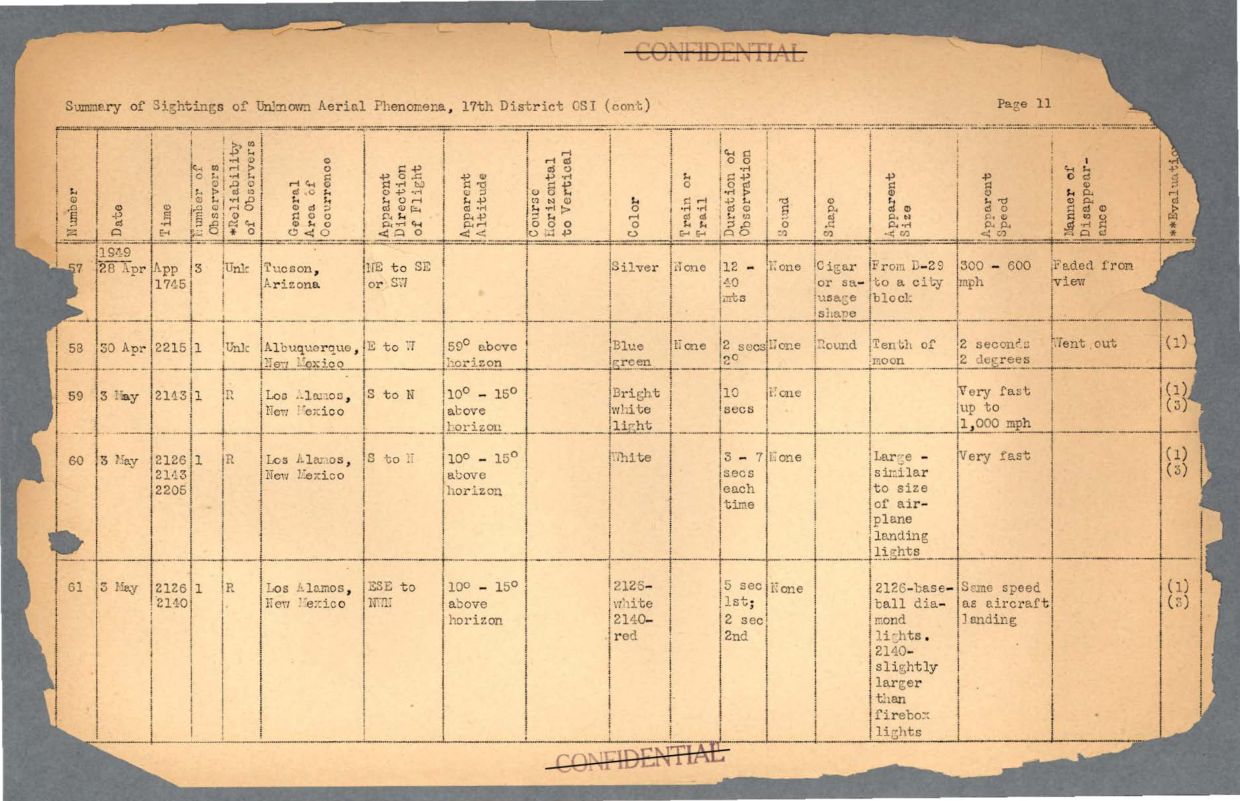 CONFIDENTIAL
Summary of Sightings of Unknown Aerial Phenomena, 17th District OSI (cont) Page 11
Number Date Time Number of Observers *Reliability of Observers General Area of Occurrence Apparent Direction of Flight Apparent Altitude Course Horizontal to Vertical Color Train or Trail Duration of Observation Sound Shape Apparent Size Apparent Speed Manner of Disappear-ance
1949
57 28 Apr App 3 Unk Tucson, NE to SE Silver None 12 - None Cigar From D-29 300 - 600 Faded from
1745 Arizona or SW 40 or sa- to a city mph view
mts usage block
shape
58 30 Apr 2215 1 Unk Albuquerque, E to W 59° above Blue None 2 secs None Round Tenth of 2 seconds Went out (1)
New Mexico horizon green 2° moon 2 degrees
59 3 May 2143 1 R Los Alamos, S to N 10° - 15° Bright 10 None Very fast (1)
New Mexico above white secs up to (3)
horizon light 1,000 mph
60 3 May 2126 1 R Los Alamos, S to N 10° - 15° White 3 - 7 None Large - Very fast (1)
2143 New Mexico above secs similar (3)
2205 horizon each to size
time of air-
plane
landing
lights
61 3 May 2126 1 R Los Alamos, ESE to 10° - 15° 2126- 5 sec None 2126-base- Same speed (1)
2140 New Mexico above white 1st; ball dia- as aircraft (3)
horizon 2140- 2 sec mond landing
red 2nd lights.
2140-
slightly
larger
than
firebox
lights
CONFIDENTIAL